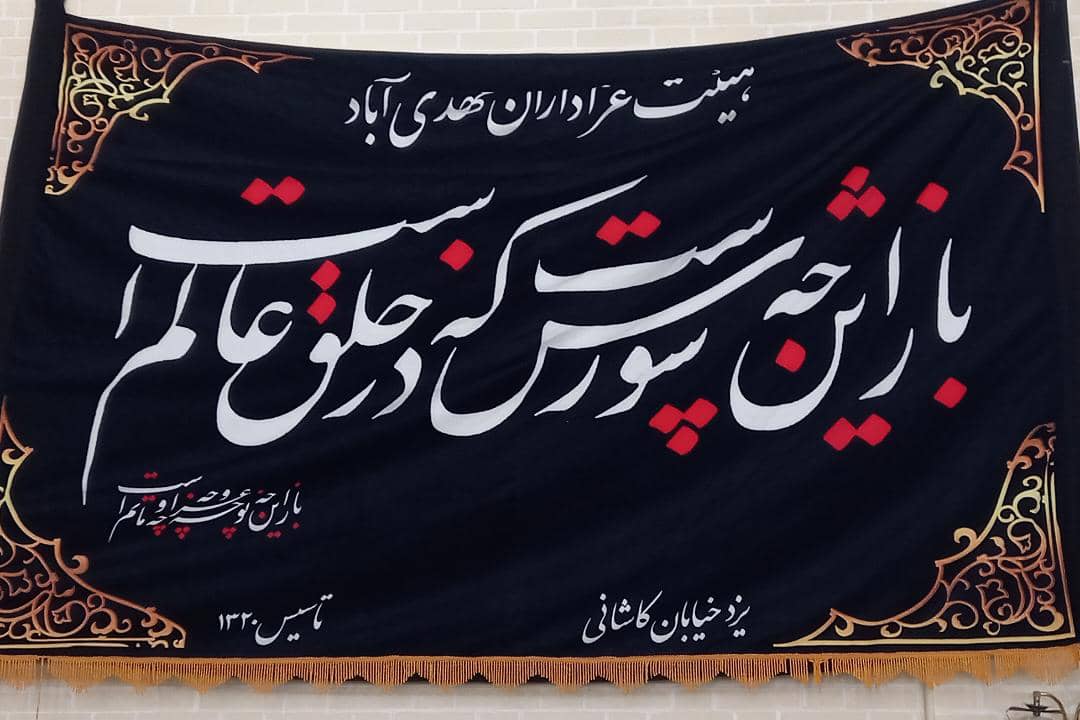 هیئت عزاداران مهدی آباد
باز این چه شورش است که در خلق عالم است
باز این چه نوحه و چه عزا و چه ماتم است
یزد خیابان کاشانی
تاسیس ۱۳۲۰